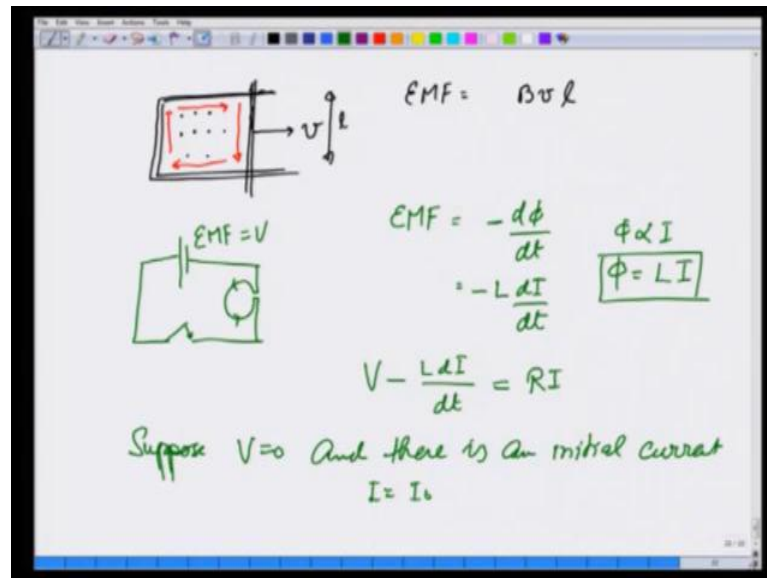 File Edit View Insert Actions Tools Help
EMF = B v l
v l
EMF = V
EMF = - dϕ/dt
ϕ ∝ I
= - L dI/dt
ϕ = L I
V - L dI/dt = RI
Suppose V=0 And there is an initial current
I = I₀